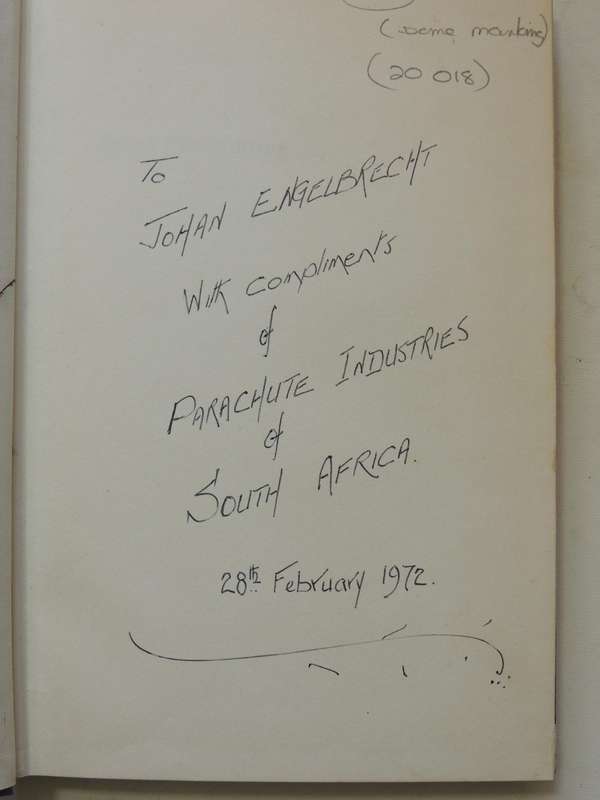 (some marking)
(20 018)
To
JOHAN ENGELBRECHT
With compliments
of
PARACHUTE INDUSTRIES
of
SOUTH AFRICA.
28th February 1972.